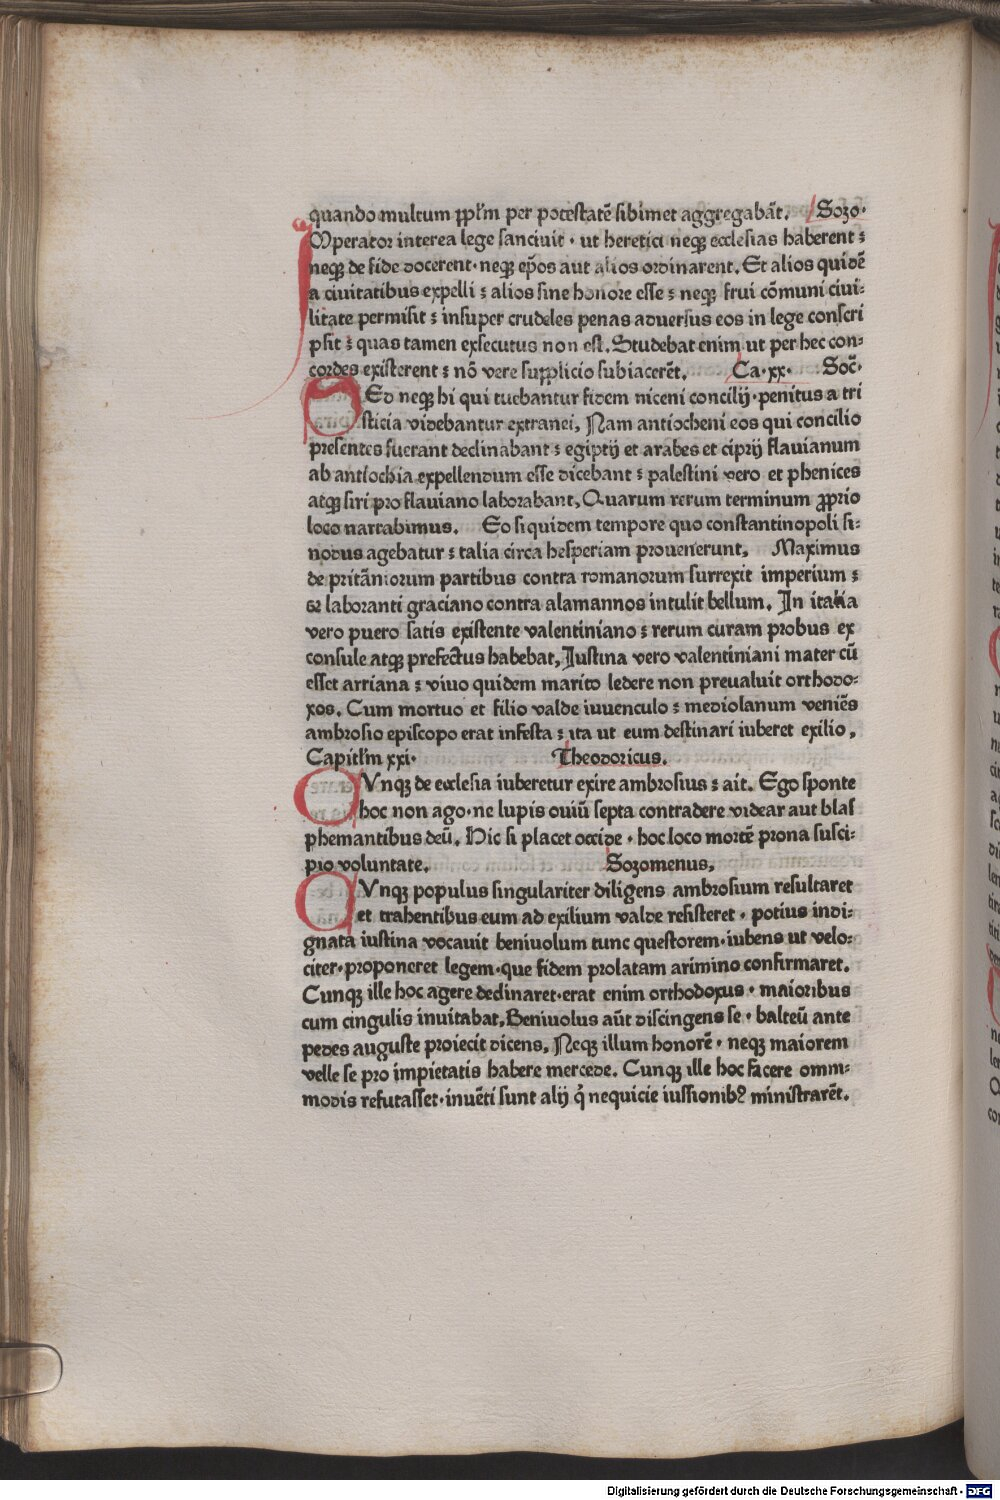 quando multum pplm per potestatē sibimet aggregabāt. Sozo.
IMperator interea lege sanciuit · ut heretici neqꝫ ecclesias haberent :
neqꝫ de fide docerent · neqꝫ ep̄os aut alios ordinarent. Et alios quidē
a ciuitatibus expelli : alios sine honore esse : neqꝫ frui cōmuni ciui-
litate permisit : insuper crudeles penas aduersus eos in lege conscri
psit : quas tamen exsecutus non est. Studebat enim ut per hec con-
cordes existerent : nō vere supplicio subiacerēt. Ca · xx · Soc̄ ·
SEd neqꝫ hi qui tuebantur fidem niceni concilij · penitus a tri
sticia videbantur extranei, Nam antiocheni eos qui concilio
presentes fuerant declinabant : egiptij et arabes et ciprij flauianum
ab antiochia expellendum esse dicebant : palestini vero et phenices
atqꝫ siri pro flauiano laborabant, Quarum rerum terminum ꝓprio
loco narrabimus. Eo siquidem tempore quo constantinopoli si-
nodus agebatur : talia circa hesperiam prouenerunt, Maximus
de pritāniorum partibus contra romanorum surrexit imperium :
et laboranti graciano contra alamannos intulit bellum. In italia
vero puero satis existente valentiniano : rerum curam probus ex
consule atqꝫ prefectus habebat, Iustina vero valentiniani mater cū
esset arriana : viuo quidem marito ledere non preualuit orthodo-
xos. Cum mortuo et filio valde iuuenculo : mediolanum veniēs
ambrosio episcopo erat infesta : ita ut eum destinari iuberet exilio,
Capitl̄m xxi · Theodoricus.
CVnqꝫ de ecclesia iuberetur exire ambrosius : ait. Ego sponte
hoc non ago · ne lupis ouiū septa contradere videar aut blas
phemantibus deū. Hic si placet occide · hoc loco mortē prona susci-
pio voluntate. Sozomenus,
CVnqꝫ populus singulariter diligens ambrosium resultaret
et trahentibus eum ad exilium valde resisteret · potius indi-
gnata iustina vocauit beniuolum tunc questorem · iubens ut velo-
citer · proponeret legem · que fidem prolatam arimino confirmaret.
Cunqꝫ ille hoc agere declinaret · erat enim orthodoxus · maioribus
cum cingulis inuitabat, Beniuolus aūt discingens se · balteū ante
pedes auguste proiecit dicens, Neqꝫ illum honorē · neqꝫ maiorem
velle se pro impietatis habere mercede. Cunqꝫ ille hoc facere omni-
modis refutasset · inuēti sunt alij q̇ nequicie iussionibꝰ ministrarēt.
Digitalisierung gefördert durch die Deutsche Forschungsgemeinschaft - DFG